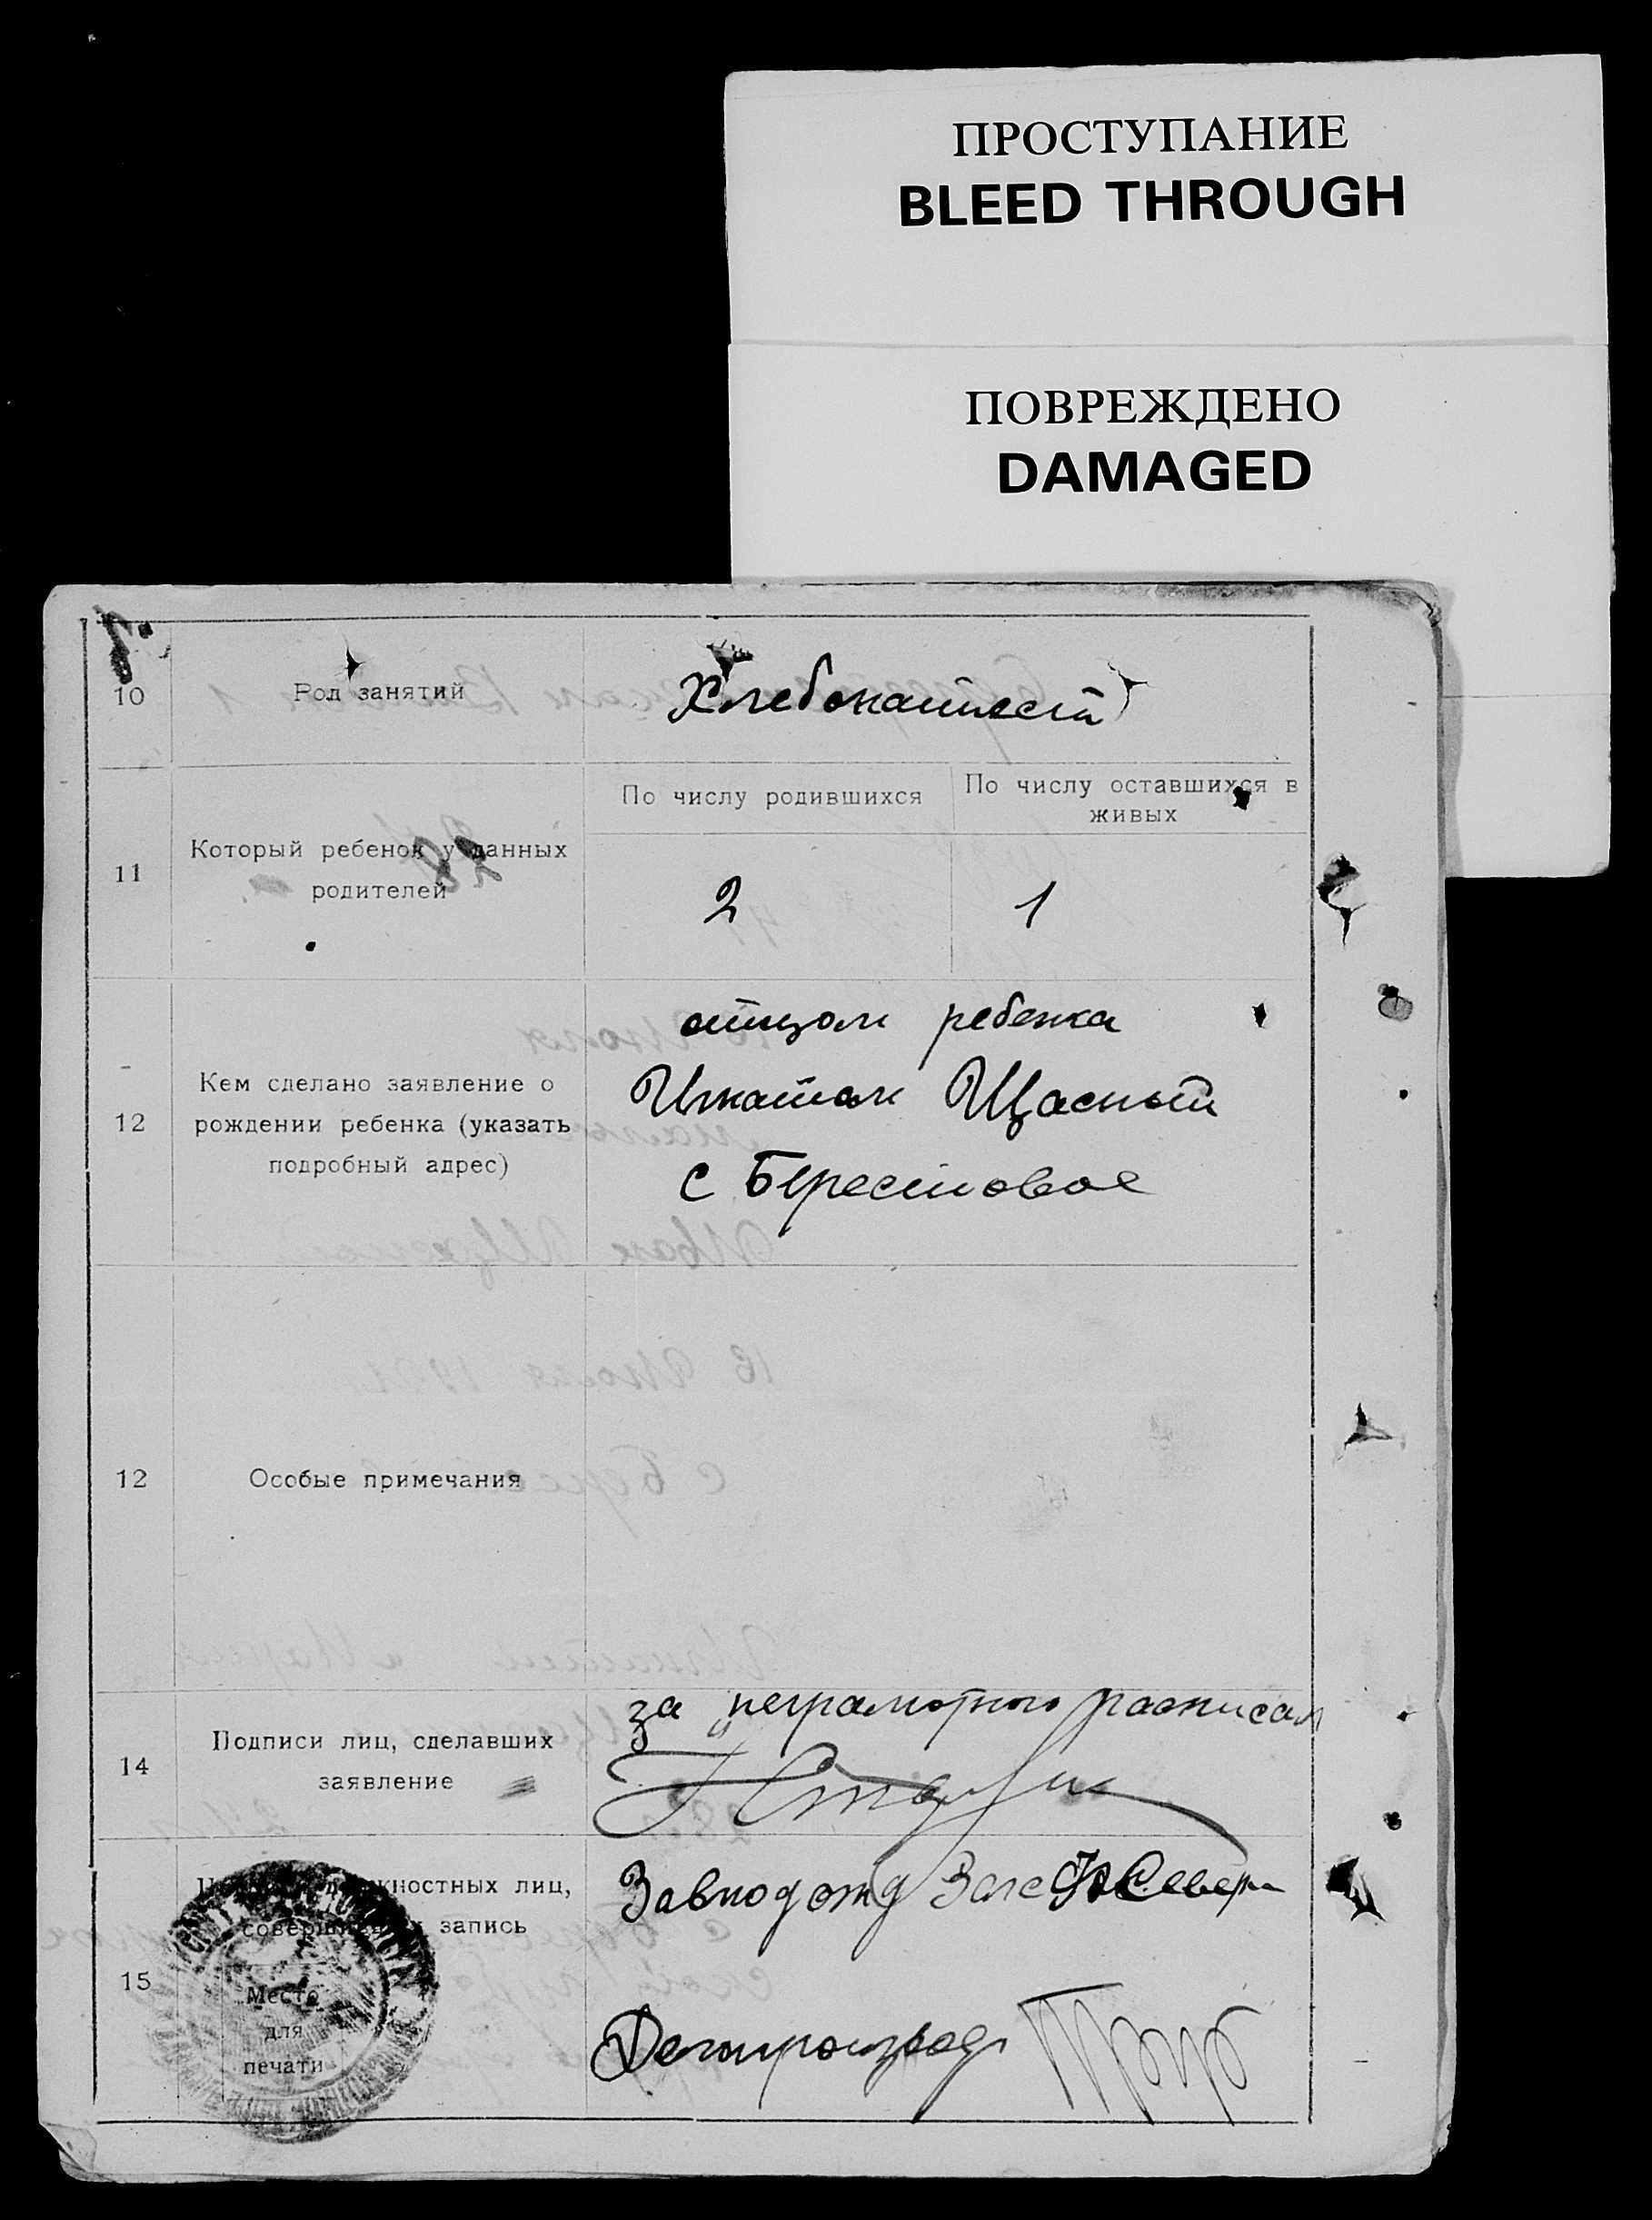 ПРОСТУПАНИЕ
BLEED THROUGH
ПОВРЕЖДЕНО
DAMAGED
10
Род занятий
Хлебопашест
11
Который ребенок у данных
родителей
28
По числу родившихся
По числу оставшихся в
живых
2
1
12
Кем сделано заявление о
рождении ребенка (указать
подробный адрес)
отцом ребенка
Игнатом Щасный
с Берестовое
12
Особые примечания
14
Подписи лиц, сделавших
заявление
за неграмотного росписал
15
должностных лиц,
запись
Место
для
печати
Завподотд
Делопроизвод